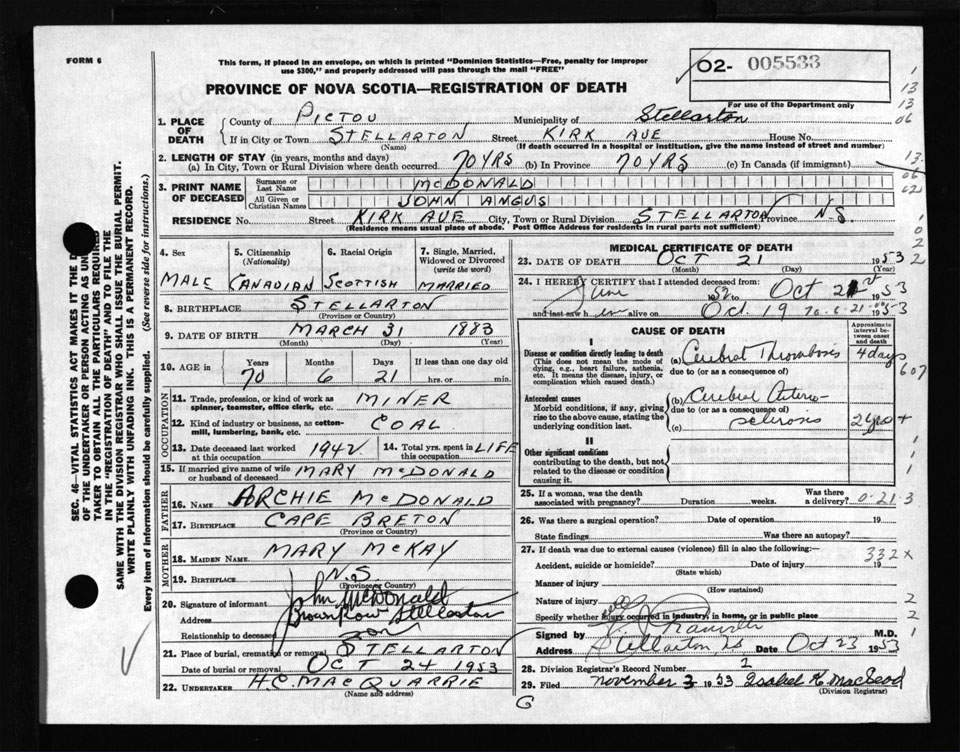 FORM 6
This form, if placed in an envelope, on which is printed "Dominion Statistics—Free, penalty for improper use $300," and properly addressed will pass through the mail "FREE"
02- 005533
For use of the Department only
PROVINCE OF NOVA SCOTIA—REGISTRATION OF DEATH
1. PLACE OF DEATH
County of PICTOU Municipality of Stellarton
If in City or Town STELLARTON Street KIRK AVE House No.
(Name) (If death occurred in a hospital or institution, give the name instead of street and number)
2. LENGTH OF STAY (in years, months and days)
(a) In City, Town or Rural Division where death occurred 70 YRS (b) In Province 70 YRS (c) In Canada (if immigrant)
3. PRINT NAME OF DECEASED
Surname or Last Name MCDONALD
All Given or Christian Names JOHN ANGUS
RESIDENCE No. Street KIRK AVE City, Town or Rural Division STELLARTON Province N.S
(Residence means usual place of abode. Post Office Address for residents in rural parts not sufficient)
4. Sex MALE
5. Citizenship (Nationality) CANADIAN
6. Racial Origin SCOTTISH
7. Single, Married, Widowed or Divorced (write the word) MARRIED
8. BIRTHPLACE STELLARTON
(Province or Country)
9. DATE OF BIRTH MARCH 31 1883
(Month) (Day) (Year)
10. AGE in Years Months Days If less than one day old
70 6 21 hrs. or min.
OCCUPATION
11. Trade, profession, or kind of work as spinner, teamster, office clerk, etc. MINER
12. Kind of industry or business, as cotton-mill, lumbering, bank, etc. COAL
13. Date deceased last worked at this occupation 1942 14. Total yrs. spent in this occupation LIFE
15. If married give name of wife or husband of deceased MARY McDONALD
FATHER
16. NAME ARCHIE McDONALD
17. BIRTHPLACE CAPE BRETON
(Province or Country)
MOTHER
18. MAIDEN NAME MARY McKAY
19. BIRTHPLACE N.S.
(Province or Country)
20. Signature of informant John McDonald
Address Stellarton
Relationship to deceased son
21. Place of burial, cremation or removal STELLARTON
Date of burial or removal OCT 24 1953
22. UNDERTAKER H.C. MACQUARRIE
(Name and address)
MEDICAL CERTIFICATE OF DEATH
23. DATE OF DEATH OCT 21 1953
(Month) (Day) (Year)
24. I HEREBY CERTIFY that I attended deceased from
June 1952 Oct 21 1953
and last saw him alive on Oct. 19 1953
CAUSE OF DEATH
Approximate interval between onset and death
I
Disease or condition directly leading to death
(This does not mean the mode of dying, e.g., heart failure, asthenia, etc. It means the disease, injury, or complication which caused death.)
(a) Cerebral Thrombosis 4 days
due to (or as a consequence of)
Antecedent causes
Morbid conditions, if any, giving rise to the above cause, stating the underlying condition last.
(b) Cerebral Arterio
due to (or as a consequence of)
(c) sclerosis
II
Other significant conditions
contributing to the death, but not related to the disease or condition causing it.
25. If a woman, was the death associated with pregnancy? Duration weeks. Was there a delivery?
0-21-3
26. Was there a surgical operation? Date of operation 19
State findings Was there an autopsy?
27. If death was due to external causes (violence) fill in also the following:—
332X
Accident, suicide or homicide? Date of injury 19
(State which)
Manner of injury
(How sustained)
Nature of injury
Specify whether injury occurred in industry, in home, or in public place
Signed by M.D.
Address Stellarton, NS Date Oct 23 1953
28. Division Registrar's Record Number 2
29. Filed November 3 1953 Isabel K. MacLeod
(Division Registrar)
SEC. 46—VITAL STATISTICS ACT MAKES IT THE D
OF THE UNDERTAKER OR PERSON ACTING AS UN
TAKER TO OBTAIN ALL THE PARTICULARS REQUIRED
IN THE "REGISTRATION OF DEATH" AND TO FILE THE
SAME WITH THE DIVISION REGISTRAR WHO SHALL ISSUE THE BURIAL PERMIT.
WRITE PLAINLY WITH UNFADING INK. THIS IS A PERMANENT RECORD.
Every item of information should be carefully supplied. (See reverse side for instructions.)